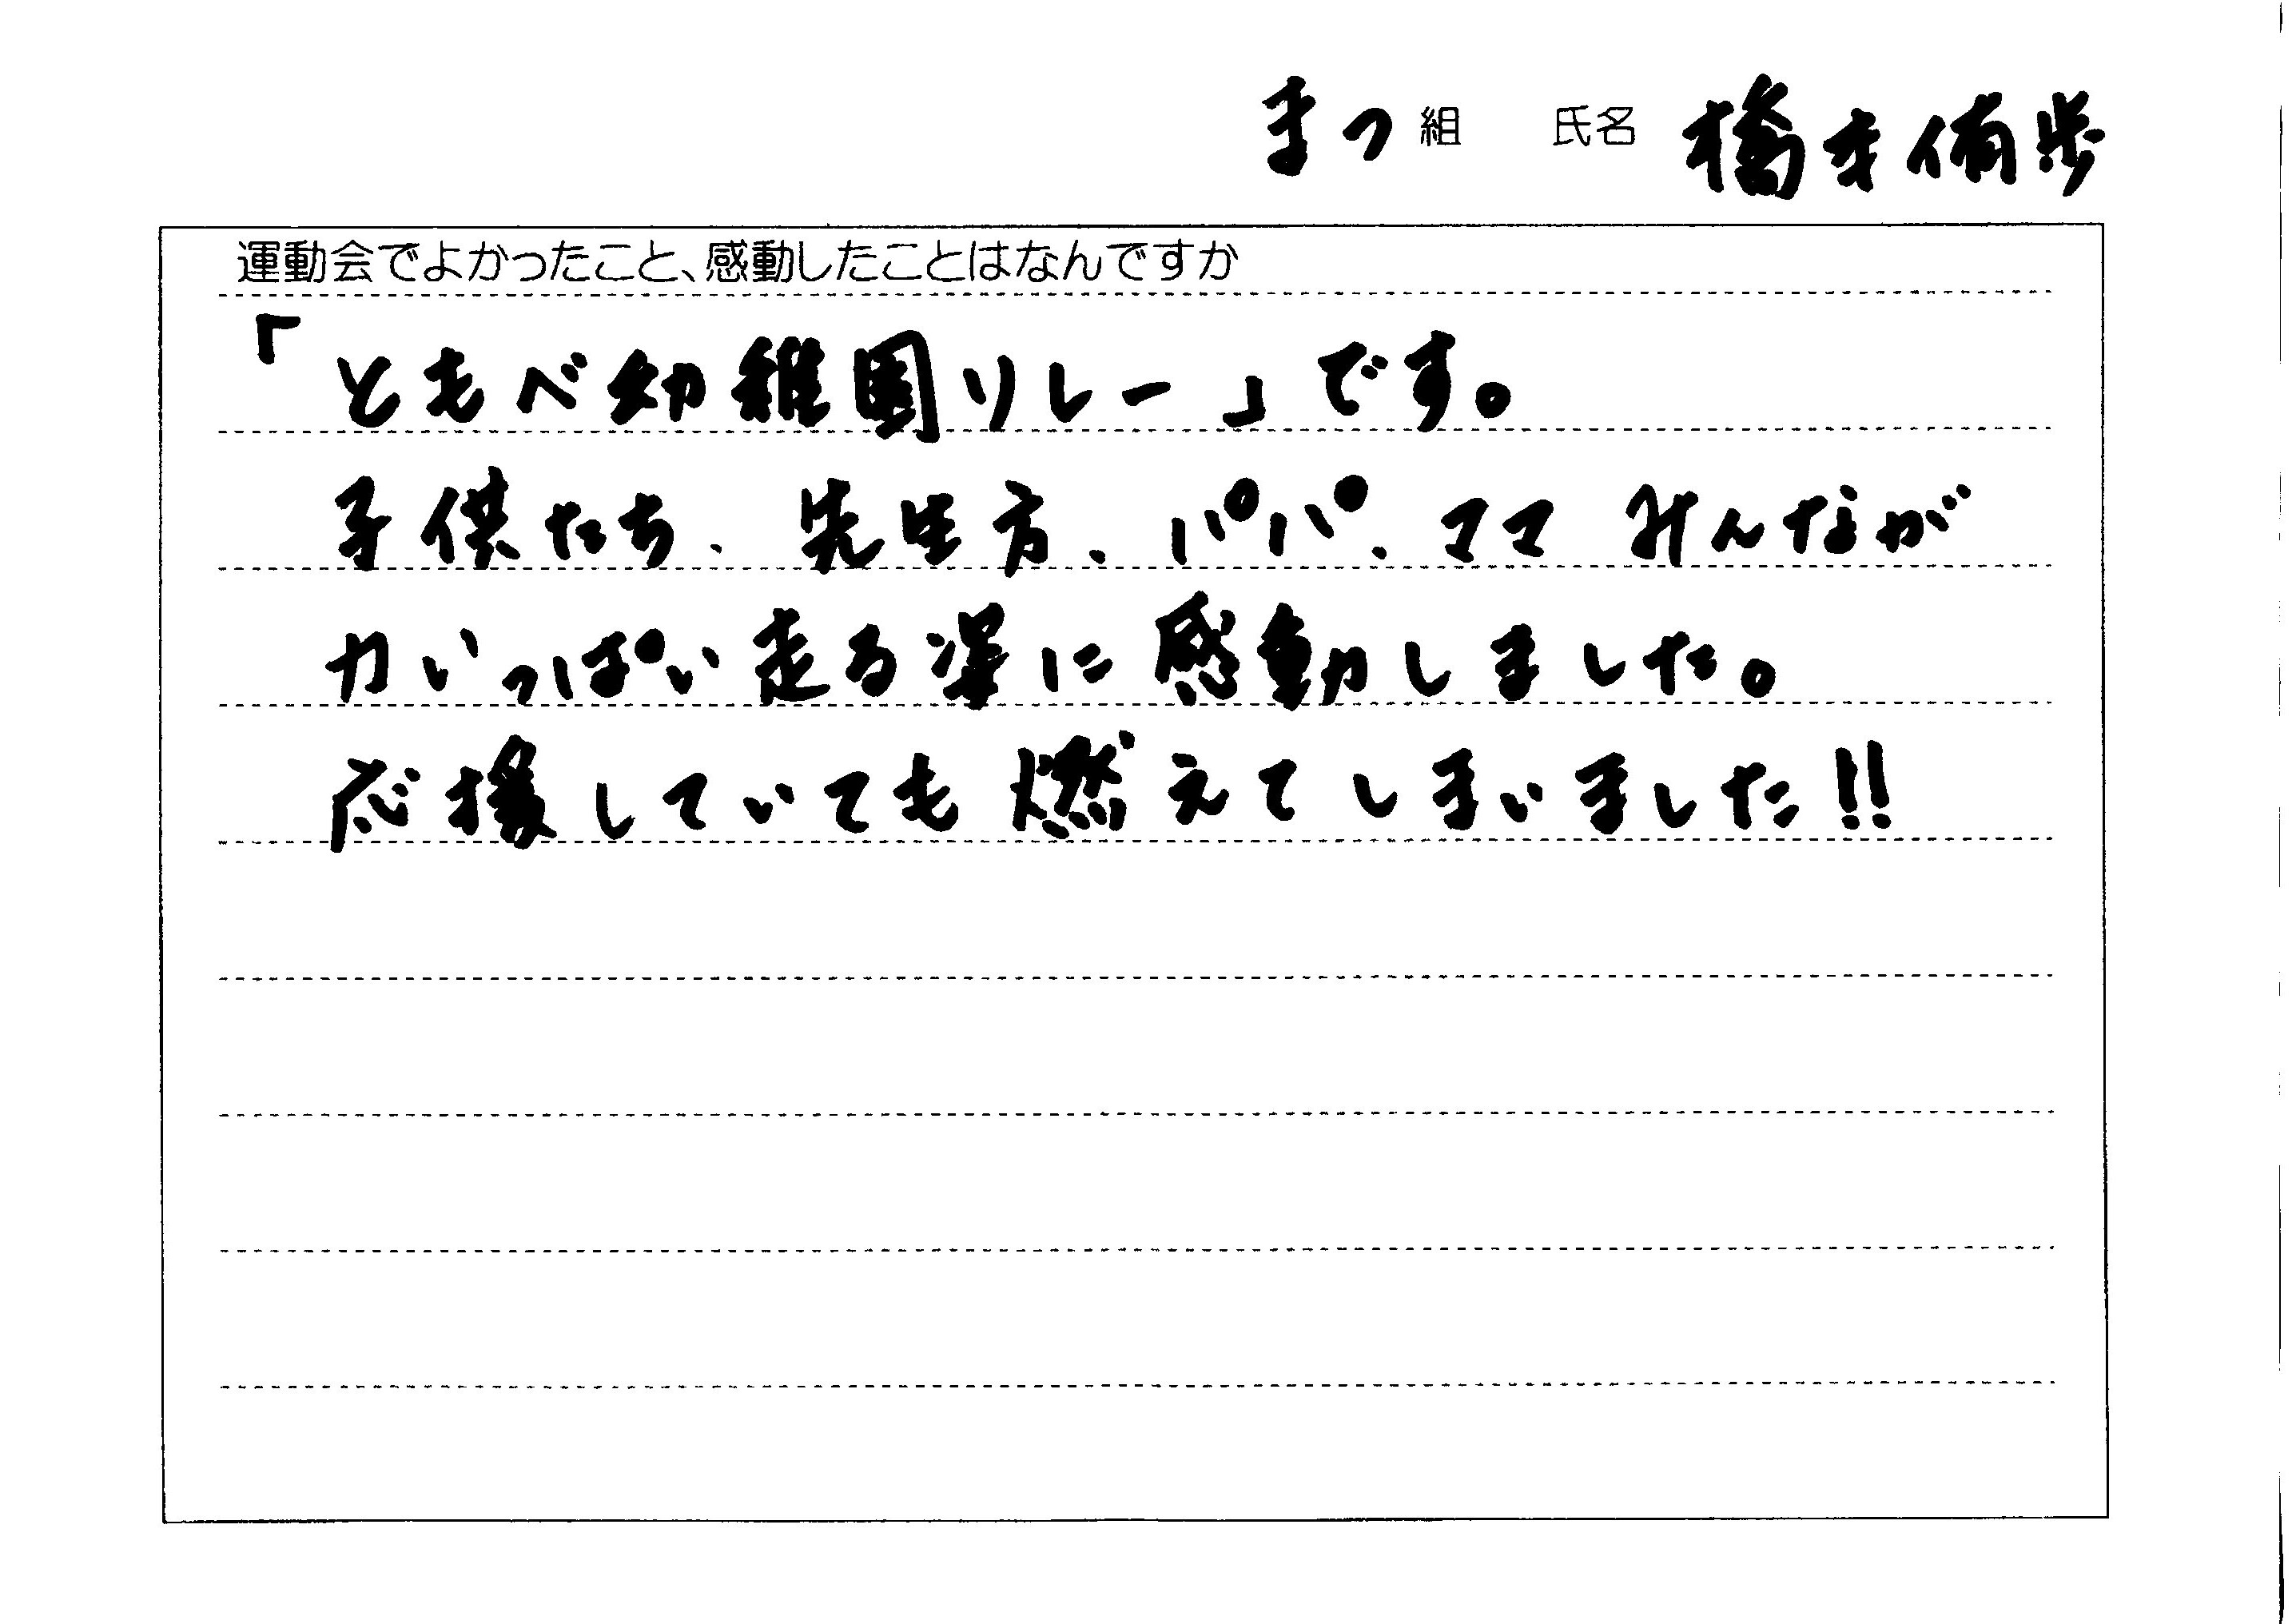 まつ組 氏名 橋本侑歩
運動会でよかったこと、感動したことはなんですか
「ともべ幼稚園リレー」です。
子供たち、先生方、パパ、ママ みんなが
力いっぱい走る姿に感動しました。
応援していても燃えてしまいました!!